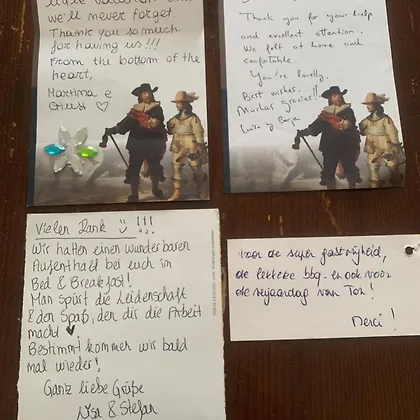 we'll never forget.
Thank you so much
for having us!!!
From the bottom of the
heart,
Martina e
♡
Thank you for your help
and excellent attention.
We felt at home and
comfortable.
You're lovely.
Best wishes.
Muchas gracias!!
Luisa y Borja
Vielen Dank !!!
Wir hatten einen wunderbaren
Aufenthalt bei euch im
Bed & Breakfast!
Man spürt die Leidenschaft
& den Spaß, den dir die Arbeit
macht
Bestimmt kommen wir bald
mal wieder!
Ganz liebe Grüße
Lisa & Stefan
voor de super gastvrijheid,
de lekkere bbq. en ook voor
de verjaardag van Ton!
Merci!